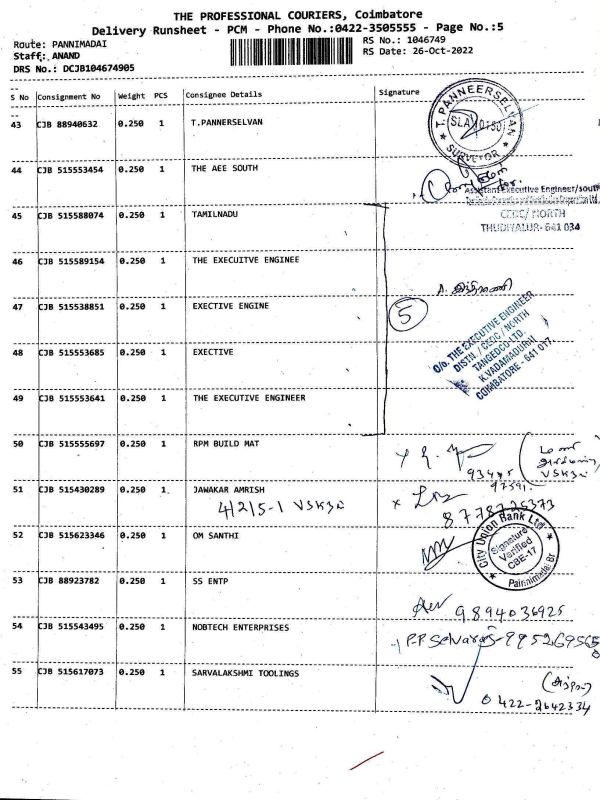 THE PROFESSIONAL COURIERS, Coimbatore
Delivery Runsheet - PCM - Phone No.:0422-3505555 - Page No.:5
Route: PANNIMADAI
RS No.: 1046749
Staff: ANAND
RS Date: 26-Oct-2022
DRS No.: DCJB104674905
S No Consignment No Weight PCS Consignee Details Signature
43 CJB 88940632 0.250 1 T.PANNERSELVAN
T. PANNEERSELVAN
SURVEYOR
44 CJB 515553454 0.250 1 THE AEE SOUTH
Assistant Executive Engineer/south
CEDC/ NORTH
THUDIYALUR- 641 034
45 CJB 515588074 0.250 1 TAMILNADU
46 CJB 515589154 0.250 1 THE EXECUITVE ENGINEE
47 CJB 515538851 0.250 1 EXECTIVE ENGINE
5
O/o. THE EXECUTIVE ENGINEER
DISTN / CEDC / NORTH
TANGEDCO-LTD.
K.VADAMADURAI
COIMBATORE - 641 017.
48 CJB 515553685 0.250 1 EXECTIVE
49 CJB 515553641 0.250 1 THE EXECUTIVE ENGINEER
50 CJB 515555697 0.250 1 RPM BUILD MAT
51 CJB 515430289 0.250 1 JAWAKAR AMRISH
52 CJB 515623346 0.250 1 OM SANTHI
City Union Bank Ltd
Signature
Verified
CBE-17
53 CJB 88923782 0.250 1 SS ENTP
9894036925
54 CJB 515543495 0.250 1 NOBTECH ENTERPRISES
55 CJB 515617073 0.250 1 SARVALAKSHMI TOOLINGS
0422-2642334